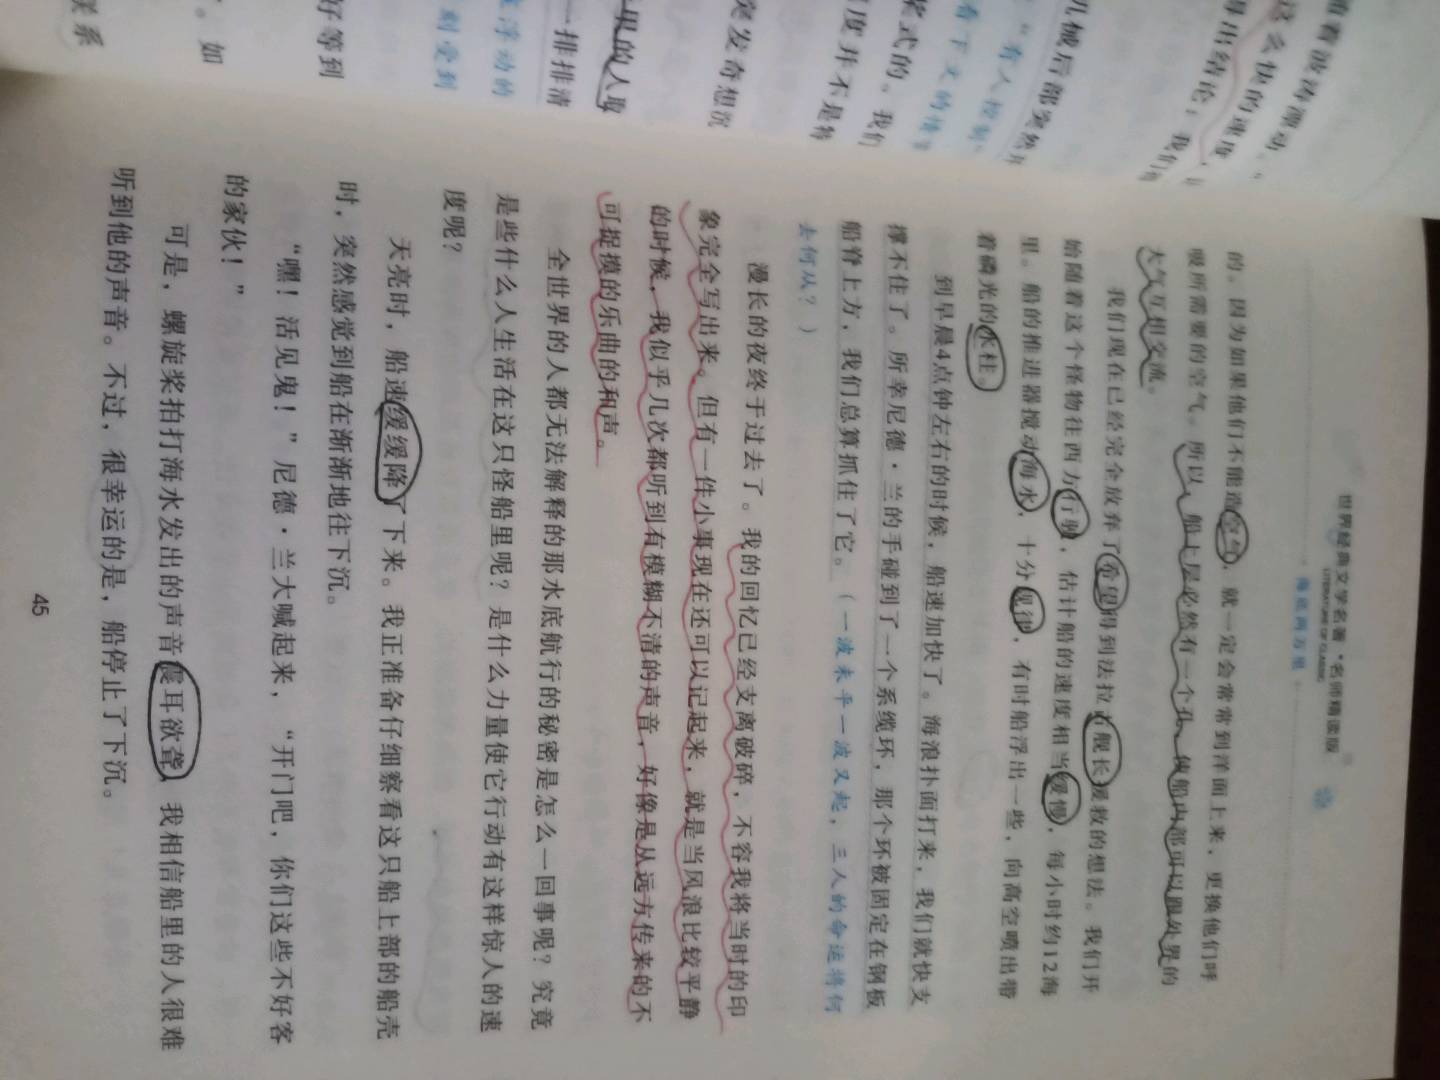 世界经典文学名著·名师精读版
LITERATURE OF CLASSIC
海底两万里
的。因为如果他们不能造空气，就一定会常常到洋面上来，更换他们呼
吸所需要的空气。所以，船上层必然有一个孔，使船内部可以跟外界的
大气互相交流。
我们现在已经完全放弃了希望得到法拉古舰长援救的想法。我们开
始随着这个怪物往西方行驶，估计船的速度相当缓慢，每小时约12海
里。船的推进器搅动海水，十分规律，有时船浮出一些，向高空喷出带
着磷光的水柱。
到早晨4点钟左右的时候，船速加快了。海浪扑面打来，我们就快支
撑不住了。所幸尼德·兰的手碰到了一个系缆环，那个环被固定在钢板
船脊上方，我们总算抓住了它。（一波未平一波又起，三人的命运将何
去何从？）
漫长的夜终于过去了。我的回忆已经支离破碎，不容我将当时的印
象完全写出来。但有一件小事现在还可以记起来，就是当风浪比较平静
的时候，我似乎几次都听到有模糊不清的声音，好像是从远方传来的不
可捉摸的乐曲的和声。
全世界的人都无法解释的那水底航行的秘密是怎么一回事呢？究竟
是些什么人生活在这只怪船里呢？是什么力量使它行动有这样惊人的速
度呢？
天亮时，船速缓缓降了下来。我正准备仔细察看这只船上部的船壳
时，突然感觉到船在渐渐地往下沉。
“嘿！活见鬼！”尼德·兰大喊起来，“开门吧，你们这些不好客
的家伙！”
可是，螺旋桨拍打海水发出的声音震耳欲聋，我相信船里的人很难
听到他的声音。不过，很幸运的是，船停止了下沉。
45
随着波涛漂动。
这么快的速度，
得出结论：我们
机械后部突然
桨式的。我们
度并不是特
突发奇想沉
里的人取
一排排清
浮动的
刻受到
好等到
。如
联系